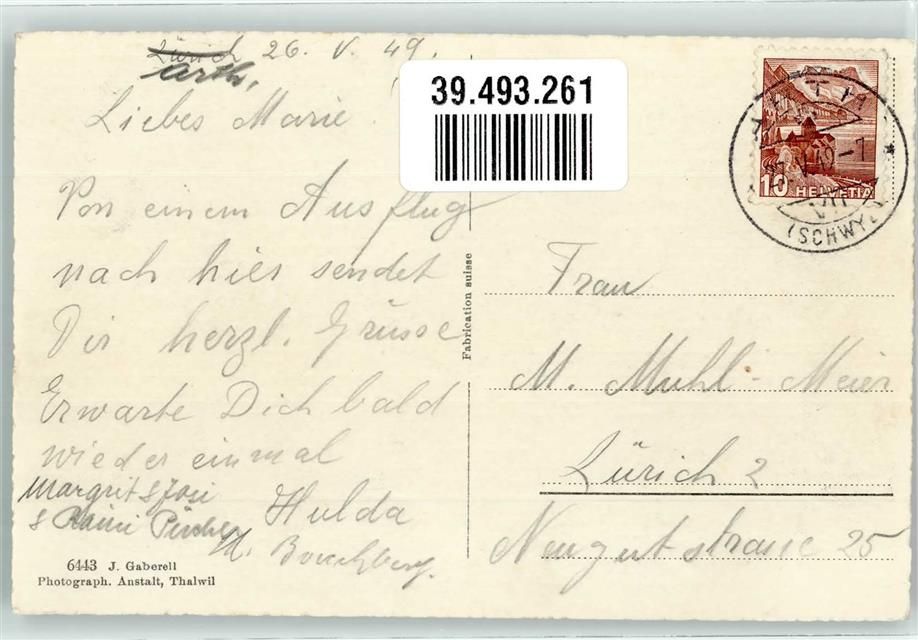 Zürich 26. V. 49.
Arth,
Liebes Marie
Von einem Ausflug
nach hier sendet
Dir herzl. Grüsse
Erwarte Dich bald
wieder einmal
Margrit & Josi
Hulda
&
39.493.261
10 HELVETIA
ARTH
(SCHWYZ)
Fabrication suisse
Frau
M. Muhl-Meier
Zürich 2
Neugutstrasse 25
6443 J. Gaberell
Photograph. Anstalt, Thalwil